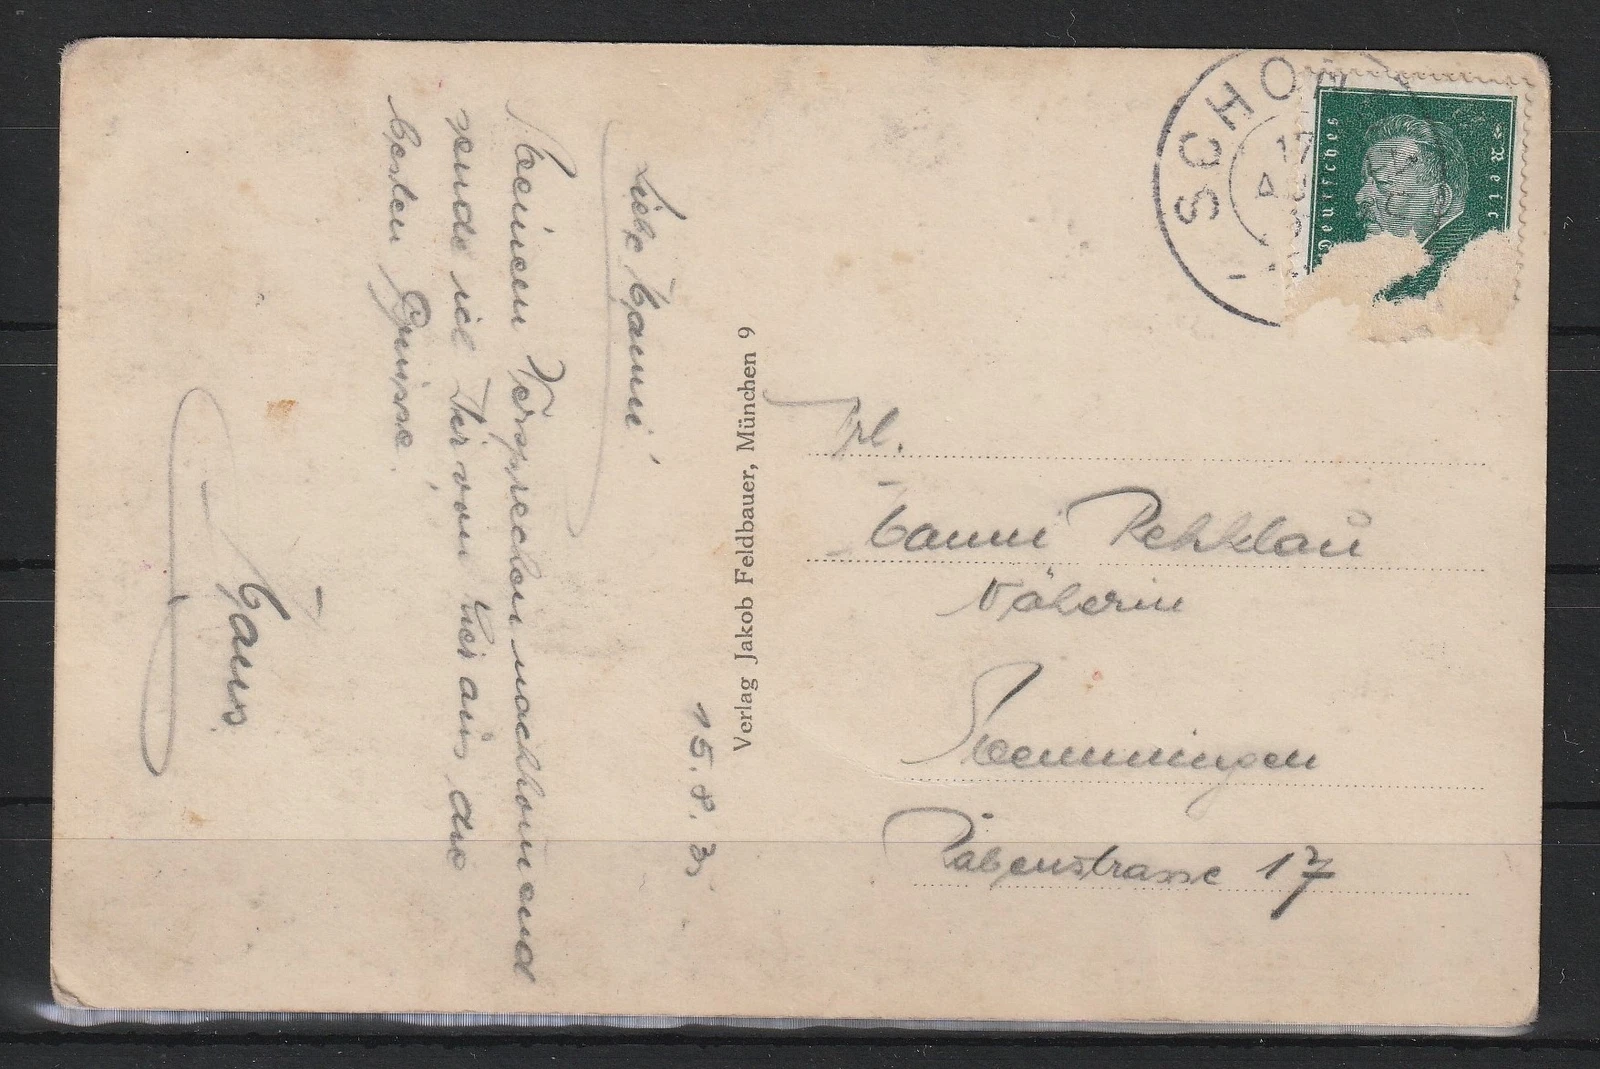 15. 8. 3
Liebe Hanni!
Meinem Versprechen nachkommend
sende ich Dir von hier aus die
besten Grüsse.
Hans.
Verlag Jakob Feldbauer, München 9
SCHON
17
Deutsches Reich
Frl.
Hanni Rehklau
Näherin
Memmingen
Rabenstrasse 17